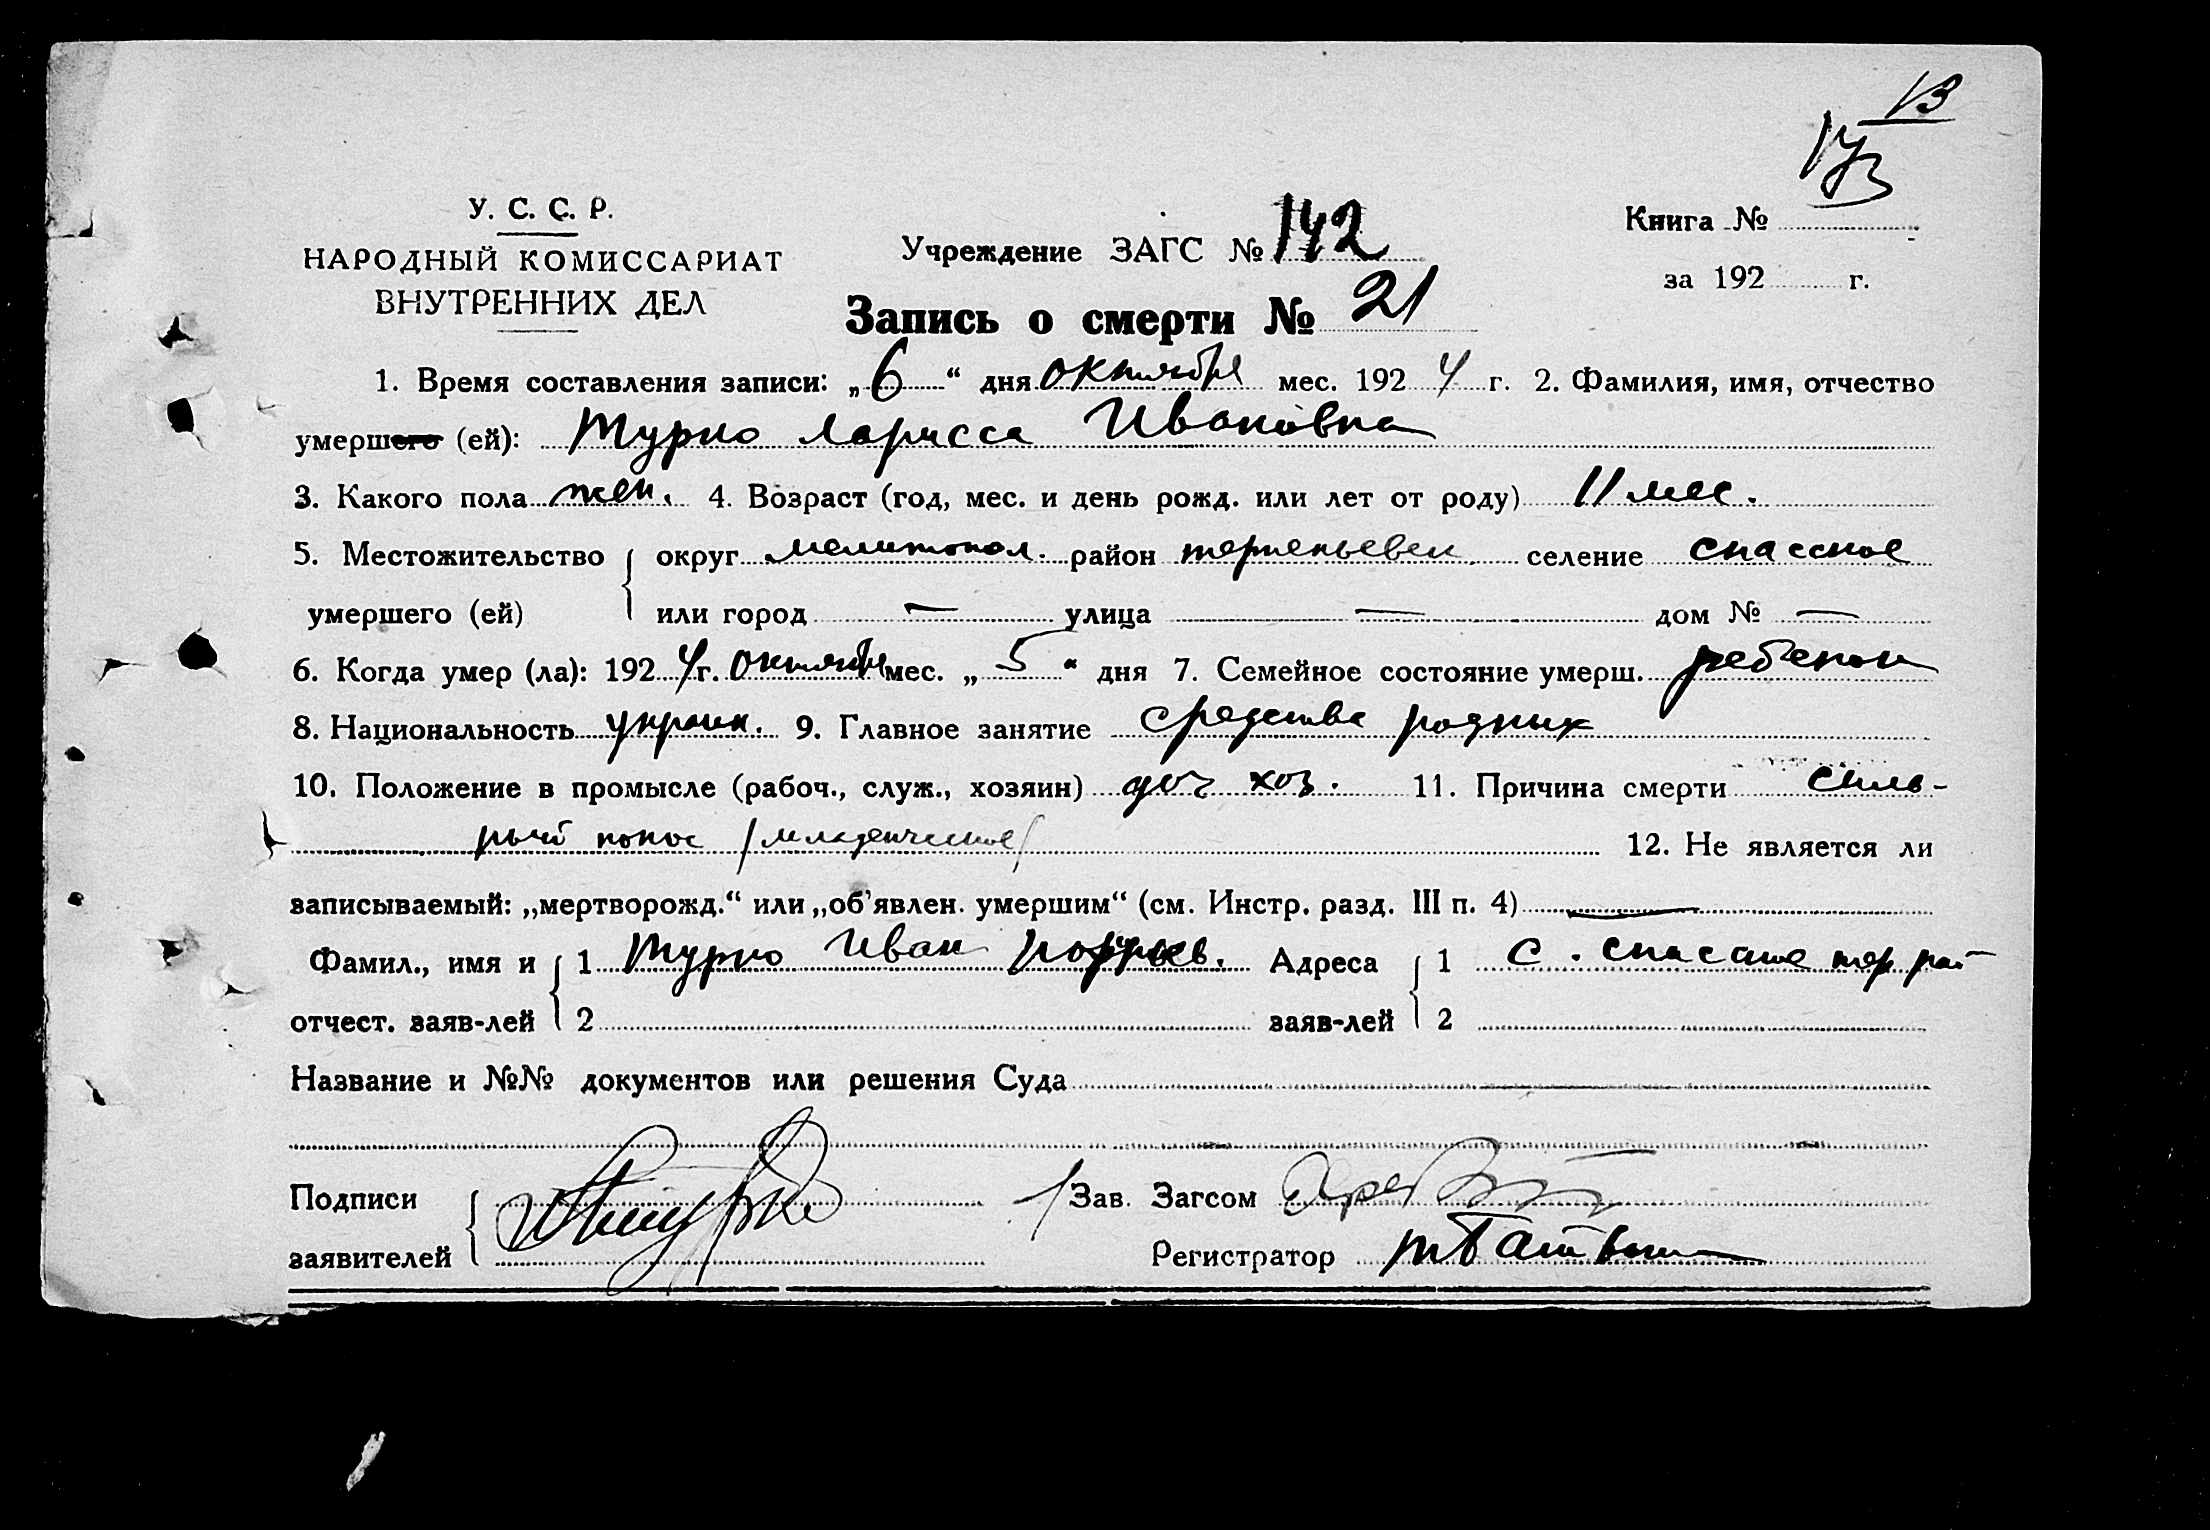 13
173
У. С. С. Р.
НАРОДНЫЙ КОМИССАРИАТ
ВНУТРЕННИХ ДЕЛ
Учреждение ЗАГС № 142
Книга №
за 192 г.
Запись о смерти № 21
1. Время составления записи: „6“ дня октября мес. 1924 г. 2. Фамилия, имя, отчество
умершего (ей): Турко Ларисса Ивановна
3. Какого пола жен. 4. Возраст (год, мес. и день рожд. или лет от роду) 11 мес.
5. Местожительство округ мелитопол. район терпеньевск селение спасское
умершего (ей) или город — улица — дом № —
6. Когда умер (ла): 1924 г. октября мес. „5“ дня 7. Семейное состояние умерш. ребенок
8. Национальность украин. 9. Главное занятие средства родных
10. Положение в промысле (рабоч., служ., хозяин) доч хоз. 11. Причина смерти силь-
ный понос (младенческое) 12. Не является ли
записываемый: „мертворожд.“ или „об'явлен. умершим“ (см. Инстр. разд. III п. 4) —
Фамил., имя и 1 Турко Иван Адреса 1 с. спасское тер рай
отчест. заяв-лей 2 заяв-лей 2
Название и №№ документов или решения Суда
Подписи Зав. Загсом
заявителей Регистратор